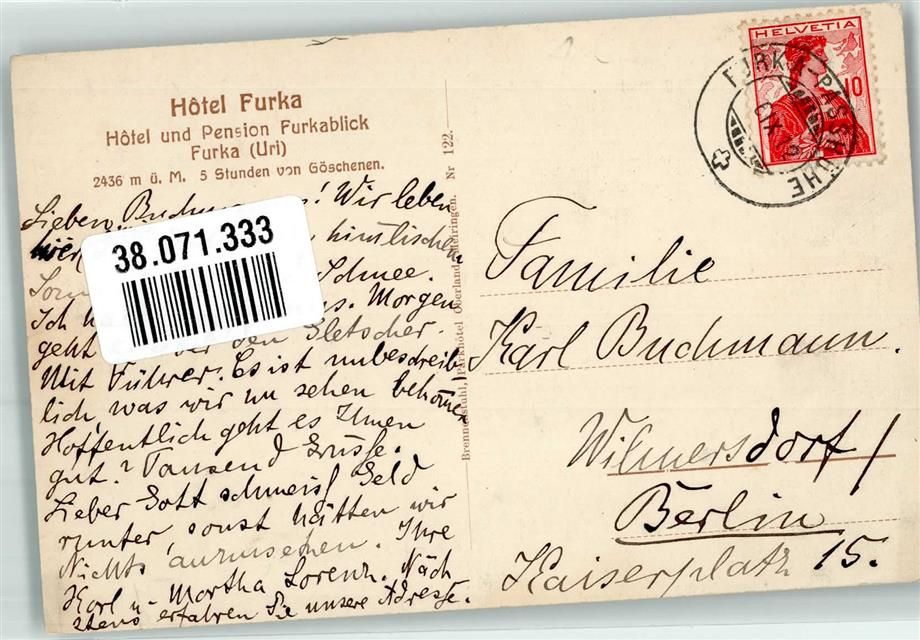 Hôtel Furka
Hôtel und Pension Furkablick
Furka (Uri)
2436 m ü. M. 5 Stunden von Göschenen.
HELVETIA
10
FURKA-PASSHÖHE
38.071.333
Lieben ! Wir leben
hier himlischen
Schnee.
Ich Morgen
geht den Gletscher.
Mit Führer. Es ist unbeschreib
lich, was wir zu sehen bekommen
Hoffentlich geht es Ihnen
gut? Tausend Grüsse.
Lieber Gott schmeiss Geld
runter, sonst hätten wir
Nichts auzusehen. Ihre
Karl u. Martha Lorenz. Näch
stens erfahren Sie unsere Adresse.
Brennenstuhl, Parkhôtel Oberland, Meiringen. Nr 122.
Familie
Karl Buchmann.
Wilmersdorf /
Berlin
Kaiserplatz 15.